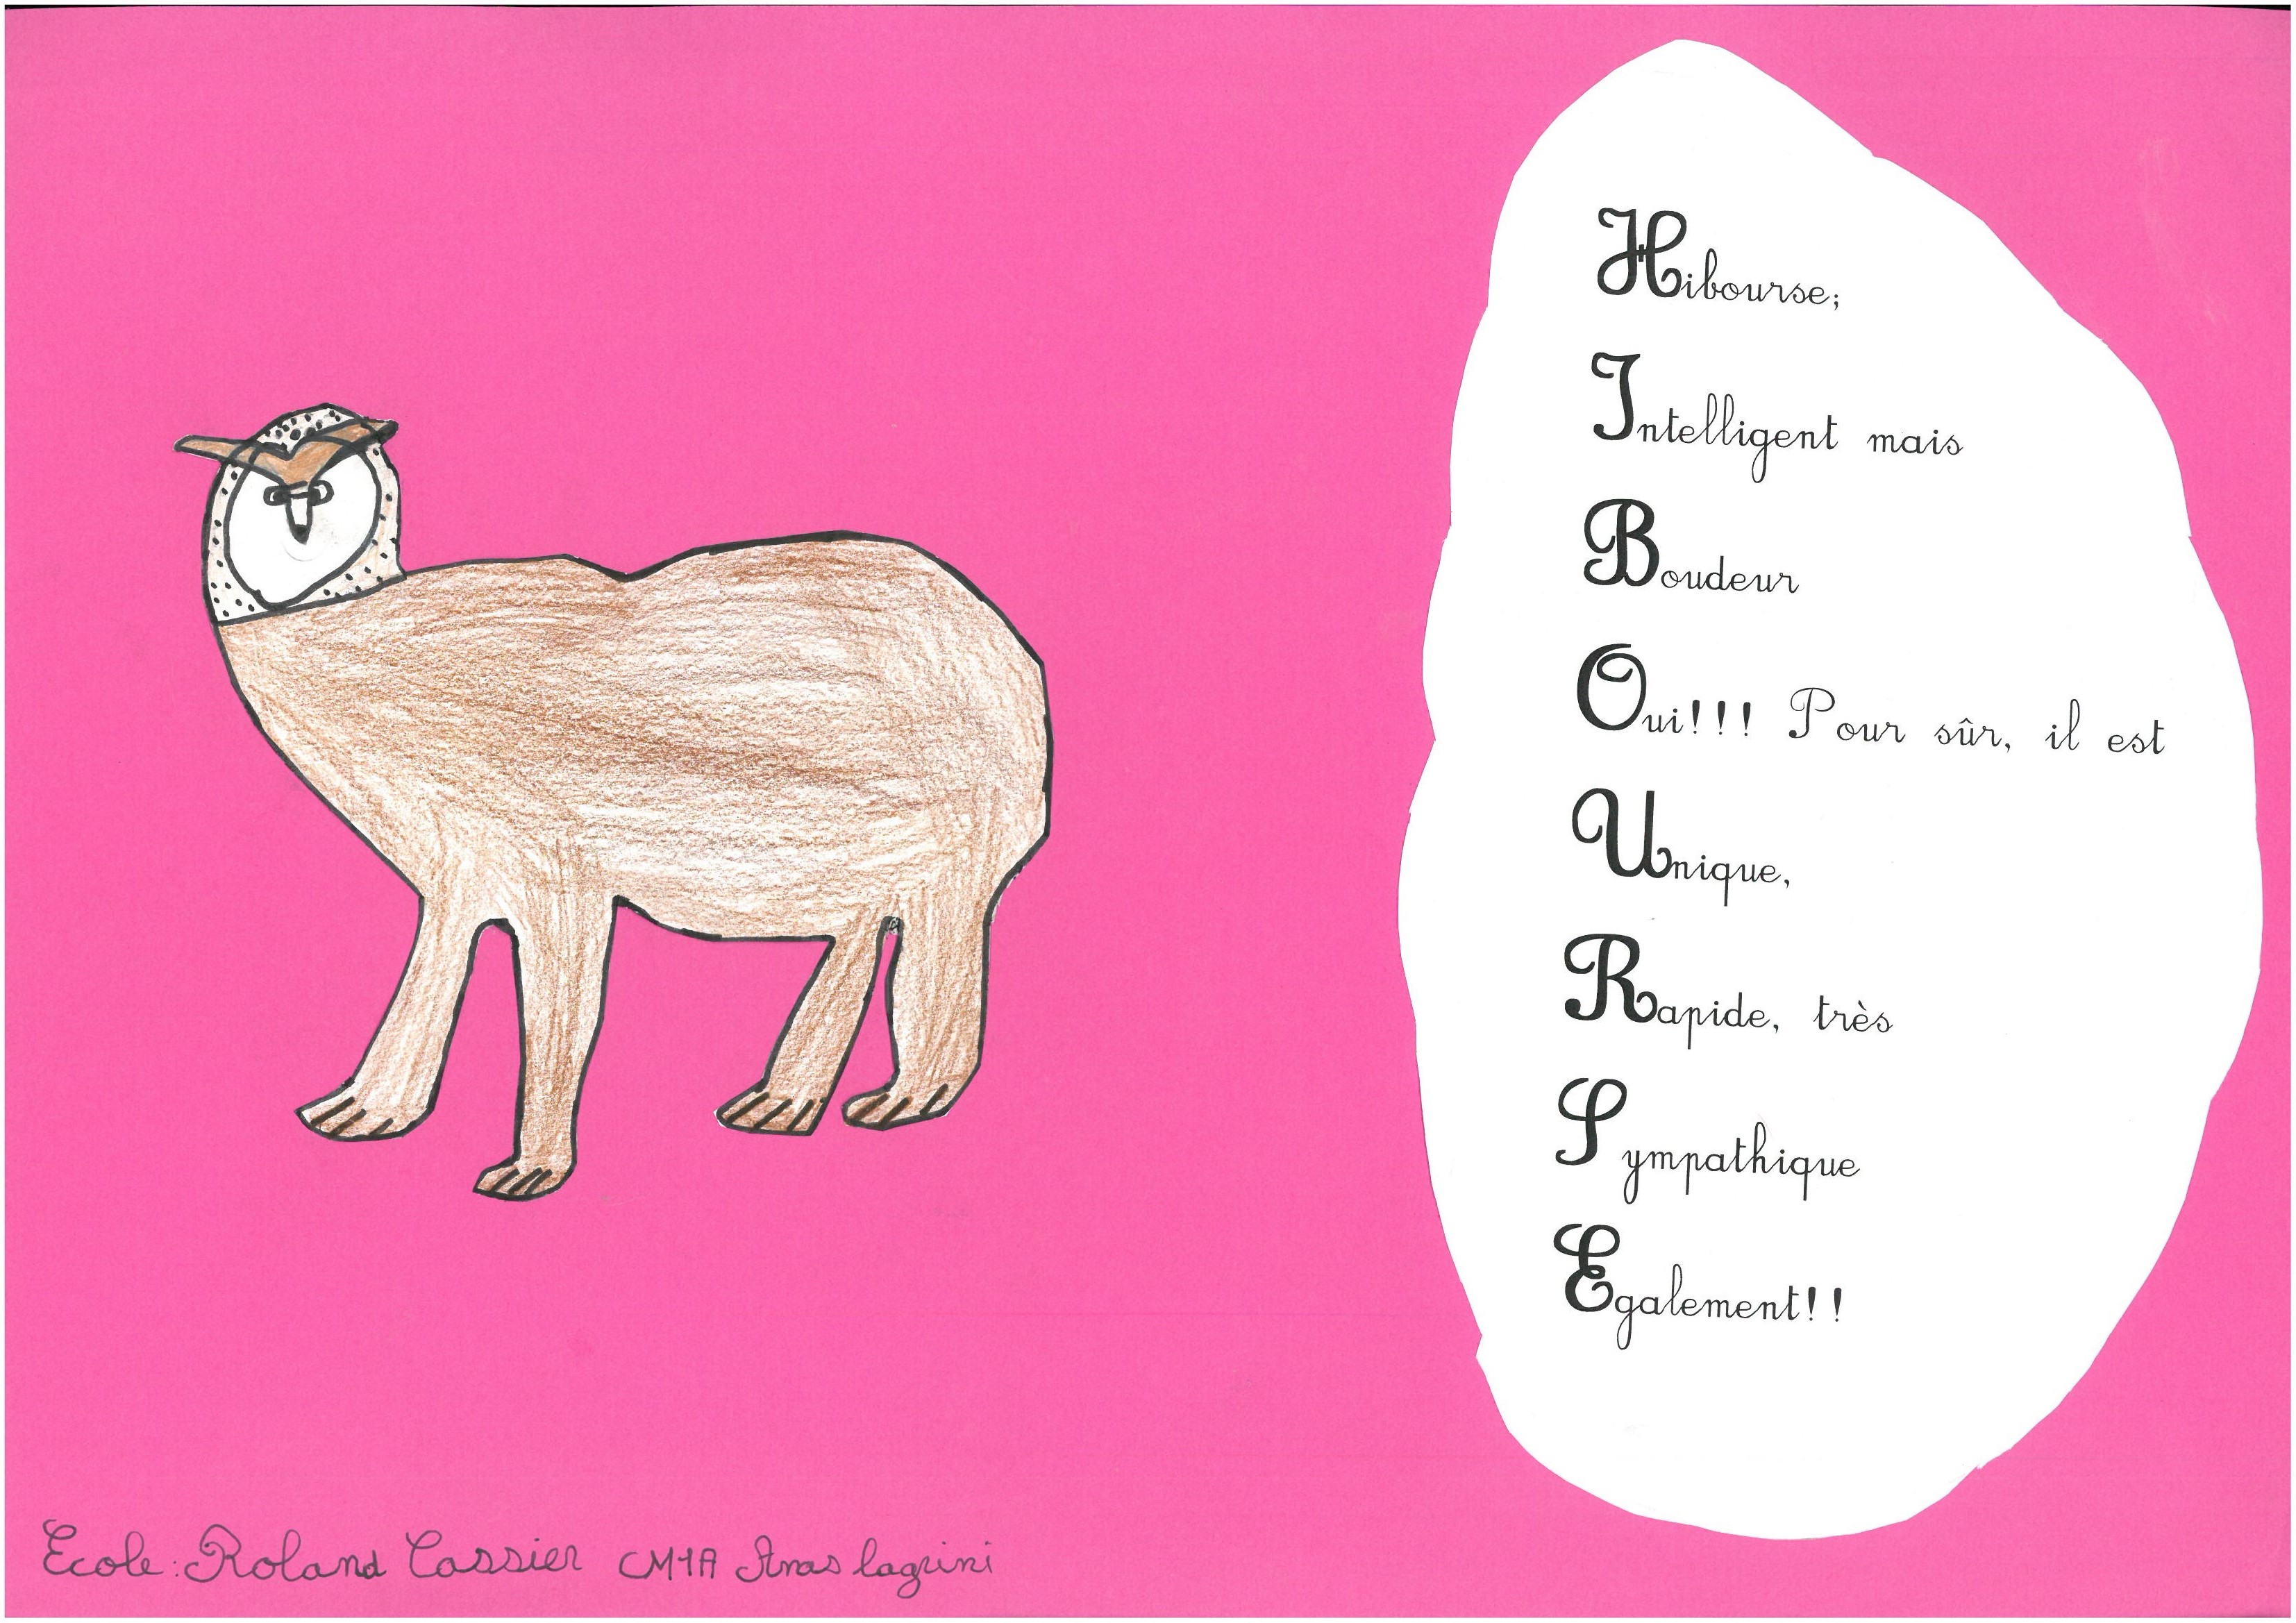 Hibourse;
Intelligent mais
Boudeur
Oui!!! Pour sûr, il est
Unique,
Rapide, très
Sympathique
Egalement!!
Ecole: Roland Cassier CM1A Anas lagrini